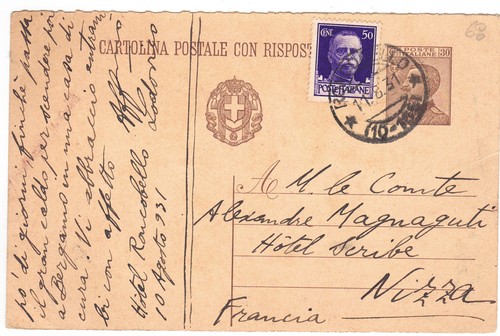 CARTOLINA POSTALE CON RISPOST
CENT. 50
POSTE ITALIANE
POSTE
ITALIANE 30
A M. le Comte
Alexandre Magnaguti
Hôtel Scribe
Nizza
Francia
pò de giorni finchè passa
il gran caldo, per scendere poi
a Bergamo in una casa di
cura. Vi abbraccio entram
bi con affetto
Hôtel Roncobello
10 Agosto 931